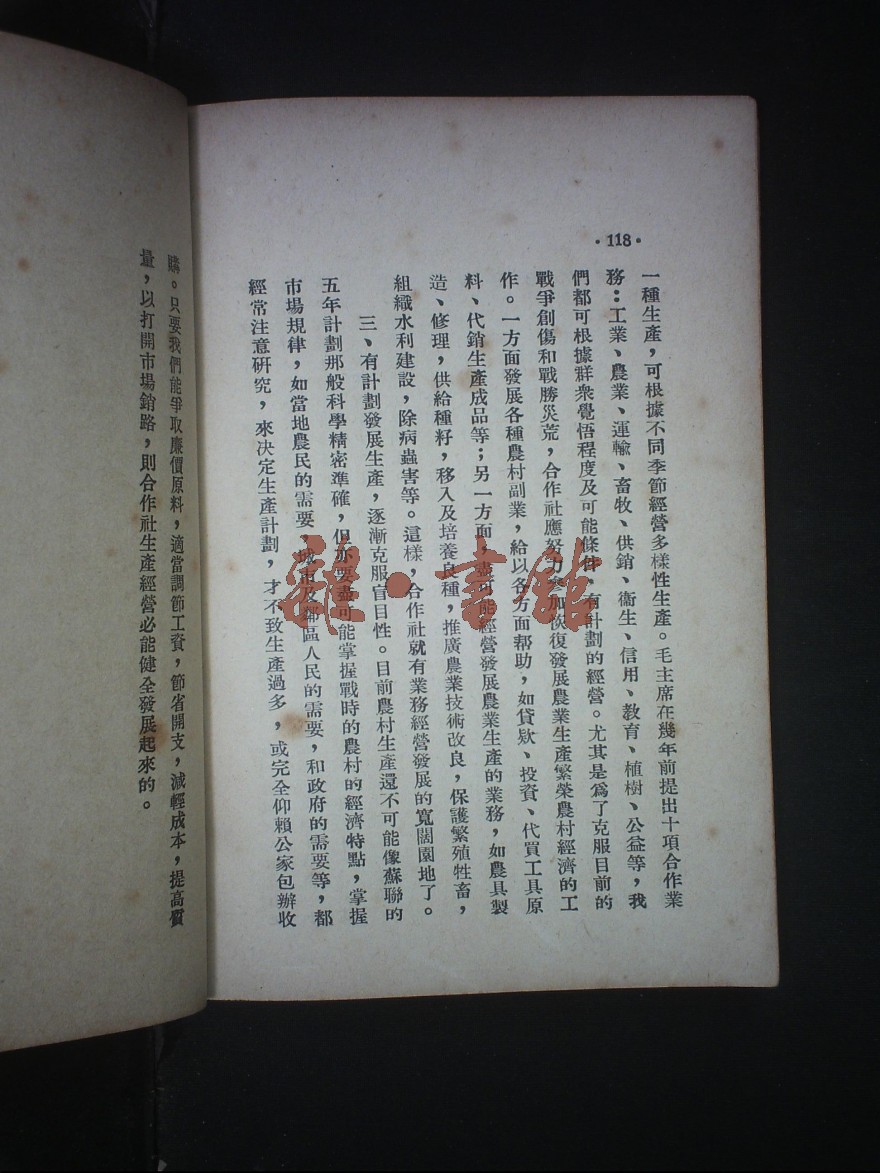 ·118·
一種生產，可根據不同季節經營多樣性生產。毛主席在幾年前提出十項合作業
務：工業、農業、運輸、畜牧、供銷、衞生、信用、教育、植樹、公益等，我
們都可根據群衆覺悟程度及可能條件，有計劃的經營。尤其是爲了克服目前的
戰爭創傷和戰勝災荒，合作社應努力參加恢復發展農業生產繁榮農村經濟的工
作。一方面發展各種農村副業，給以各方面幫助，如貸欵、投資、代買工具原
料、代銷生產成品等；另一方面，盡可能經營發展農業生產的業務，如農具製
造、修理，供給種籽，移入及培養良種，推廣農業技術改良，保護繁殖牲畜，
組織水利建設，除病蟲害等。這樣，合作社就有業務經營發展的寬闊園地了。
三、有計劃發展生產，逐漸克服盲目性。目前農村生產還不可能像蘇聯的
五年計劃那般科學精密準確，但亦要盡可能掌握戰時的農村的經濟特點，掌握
市場規律，如當地農民的需要，城市及鄰區人民的需要，和政府的需要等，都
經常注意研究，來決定生產計劃，才不致生產過多，或完全仰賴公家包辦收
購。只要我們能爭取廉價原料，適當調節工資，節省開支，減輕成本，提高質
量，以打開市場銷路，則合作社生產經營必能健全發展起來的。
雅·書館